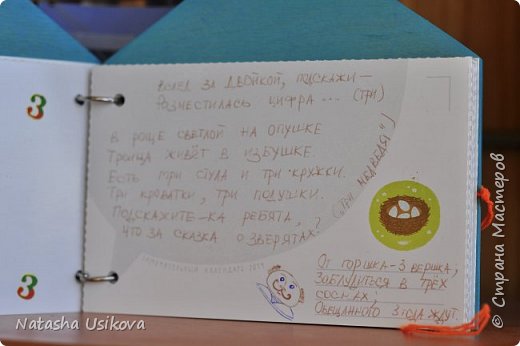 3
3
ВСЛЕД ЗА ДВОЙКОЙ, ПОДСКАЖИ –
РАЗМЕСТИЛАСЬ ЦИФРА... (ТРИ)
В РОЩЕ СВЕТЛОЙ НА ОПУШКЕ
ТРОИЦА ЖИВЁТ В ИЗБУШКЕ.
ЕСТЬ ТРИ СТУЛА И ТРИ КРУЖКИ.
ТРИ КРОВАТКИ, ТРИ ПОДУШКИ.
ПОДСКАЖИТЕ-КА РЕБЯТА,
ЧТО ЗА СКАЗКА О ЗВЕРЯТАХ?
("ТРИ МЕДВЕДЯ")
КАЛЕНДАРЬ
ОТ ГОРШКА – 3 ВЕРШКА,
ЗАБЛУДИТЬСЯ В ТРЁХ
СОСНАХ,
ОБЕЩАННОГО 3 ГОДА ЖДУТ.
Natasha Usikova
© Страна Мастеров